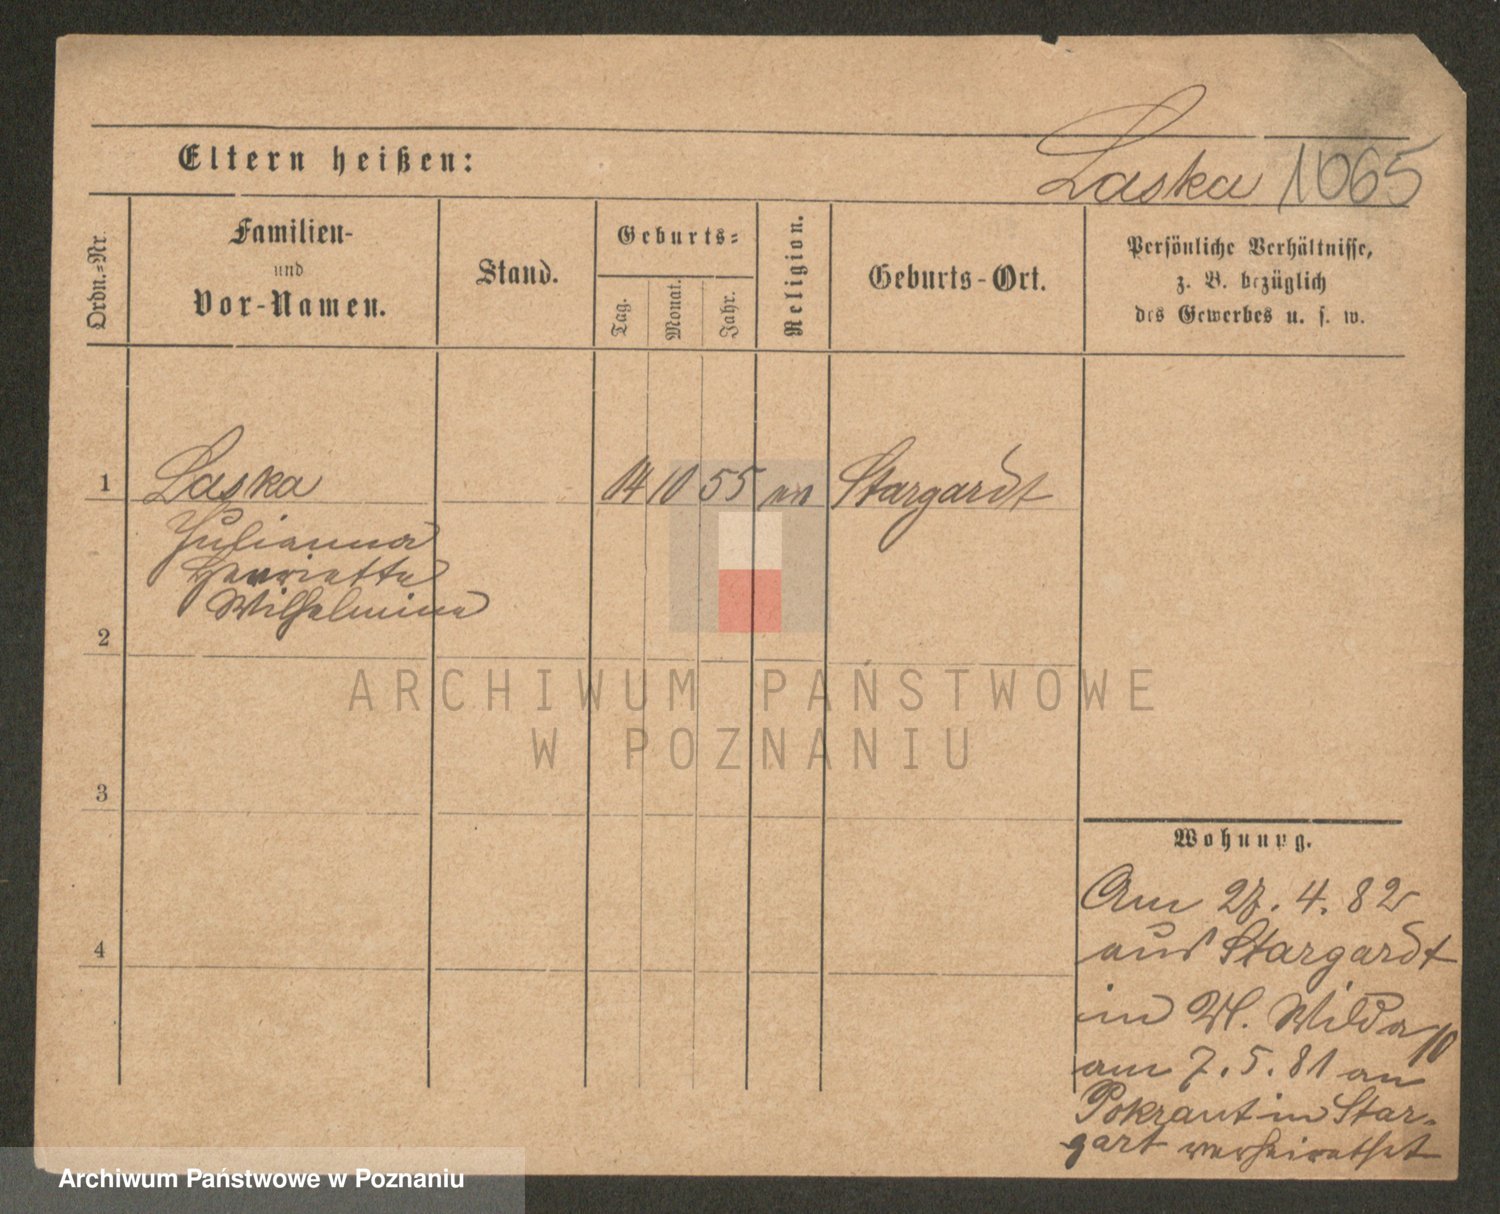 Laska 1065
Eltern heißen:
Ordn.=Nr.
Familien-
und
Vor-Namen.
Stand.
Geburts=
Tag.
Monat.
Jahr.
Religion.
Geburts-Ort.
Persönliche Verhältnisse,
z. B. bezüglich
des Gewerbes u. s. w.
1 Laska 14 10 55 Stargardt
Julianna
Henriette
Wilhelmine
2
3
4
Wohnung.
Am 27. 4. 82
aus Stargardt
in W. Wilda 10
am 7. 5. 81 an
Pokrant in Star-
gart verheirathet
ARCHIWUM PAŃSTWOWE
W POZNANIU
Archiwum Państwowe w Poznaniu